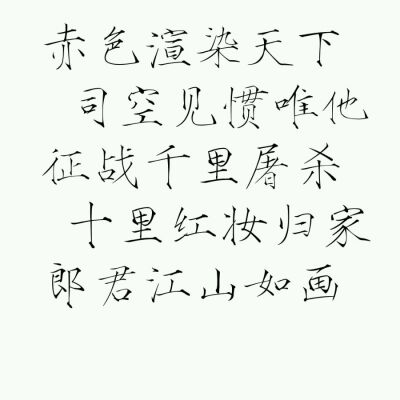 赤色渲染天下
司空见惯唯他
征战千里屠杀
十里红妆归家
郎君江山如画